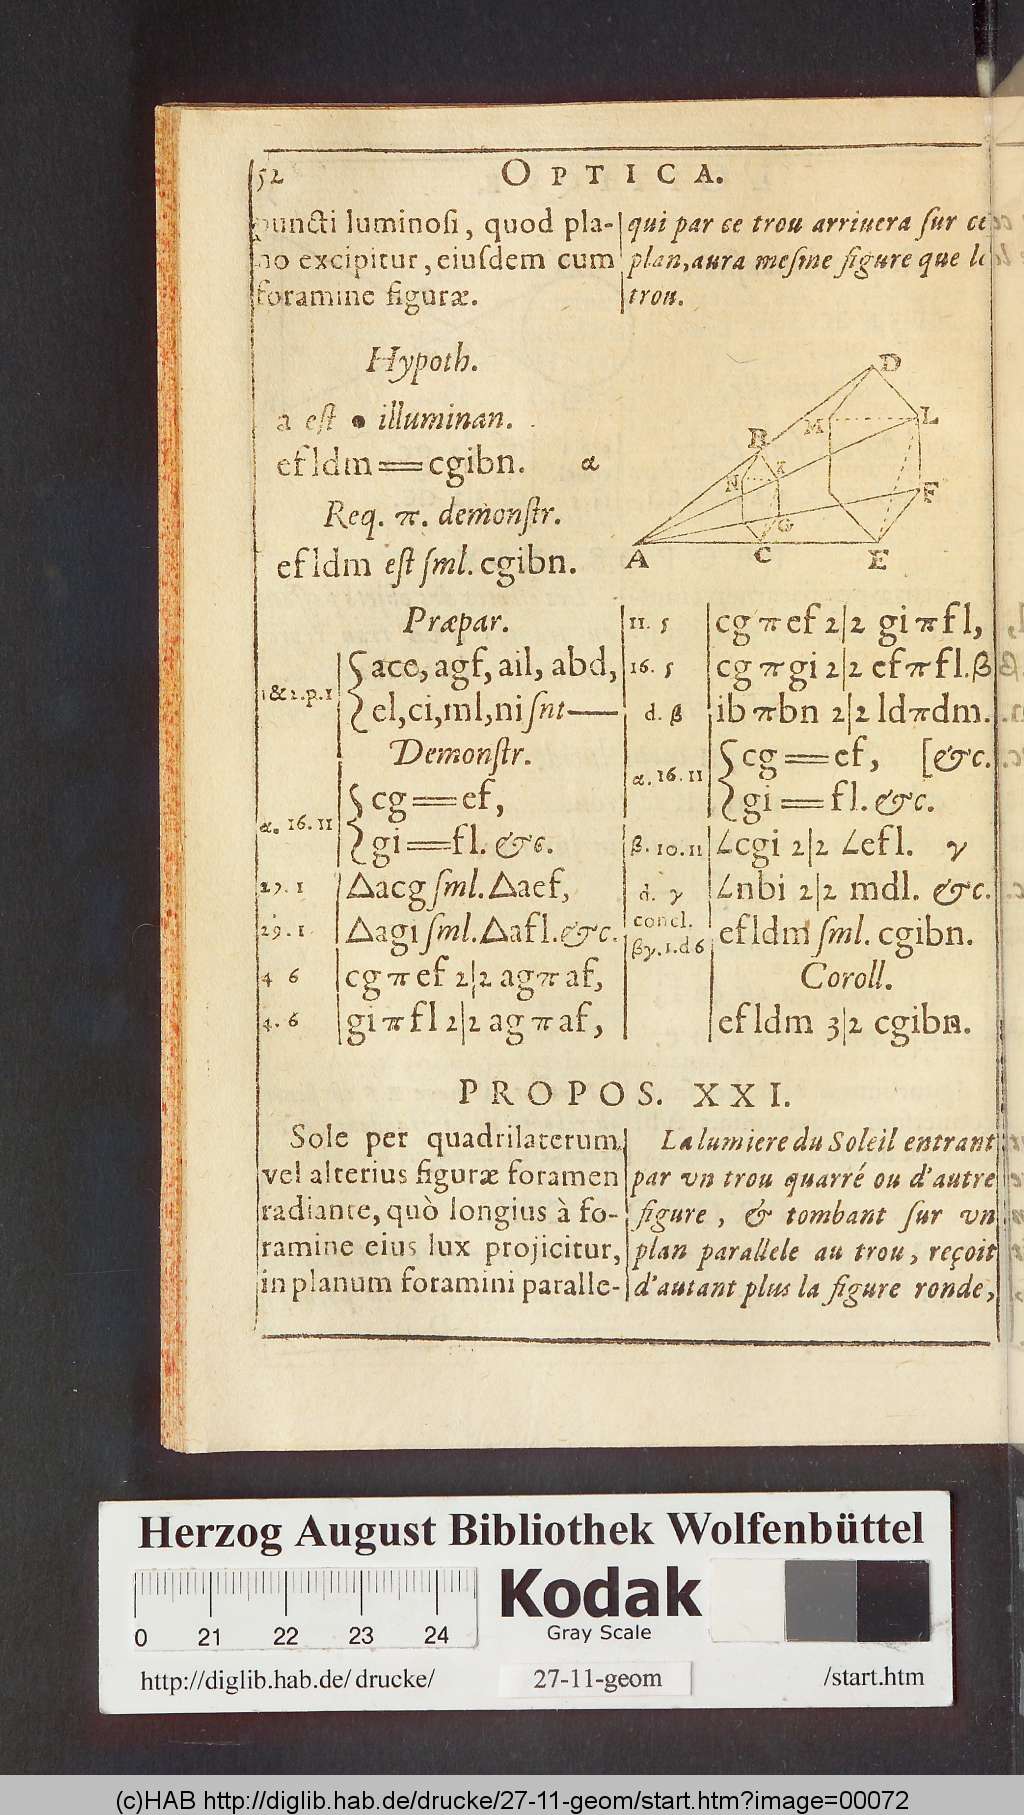 52 OPTICA.
puncti luminosi, quod pla-
no excipitur, eiusdem cum
foramine figuræ.
qui par ce trou arriuera sur ce
plan, aura mesme figure que le
trou.
Hypoth.
a est • illuminan.
efldm == cgibn. α
Req. π. demonstr.
efldm est sml. cgibn.
D
B M L
N I F
G
A C E
Præpar.
1&2.p.1 { ace, agf, ail, abd,
el, ci, ml, ni snt —
Demonstr.
α. 16. 11 { cg == ef,
gi == fl. &c.
29. 1 Δacg sml. Δaef,
29. 1 Δagi sml. Δafl. &c.
4 6 cg π ef 2|2 ag π af,
4. 6 gi π fl 2|2 ag π af,
11. 5 cg π ef 2|2 gi π fl,
16. 5 cg π gi 2|2 ef π fl. β
d. β ib π bn 2|2 ld π dm.
α. 16. 11 { cg == ef, [&c.
gi == fl. &c.
β. 10. 11 ∠cgi 2|2 ∠efl. γ
d. γ ∠nbi 2|2 mdl. &c.
concl.
βγ. 1. d 6 efldm sml. cgibn.
Coroll.
efldm 3|2 cgibn.
PROPOS. XXI.
Sole per quadrilaterum,
vel alterius figuræ foramen
radiante, quò longius à fo-
ramine eius lux projicitur,
in planum foramini paralle-
La lumiere du Soleil entrant
par vn trou quarré ou d'autre
figure, & tombant sur vn
plan parallele au trou, reçoit
d'autant plus la figure ronde,
Herzog August Bibliothek Wolfenbüttel
0 21 22 23 24
Kodak
Gray Scale
http://diglib.hab.de/ drucke/ 27-11-geom /start.htm
(c)HAB http://diglib.hab.de/drucke/27-11-geom/start.htm?image=00072